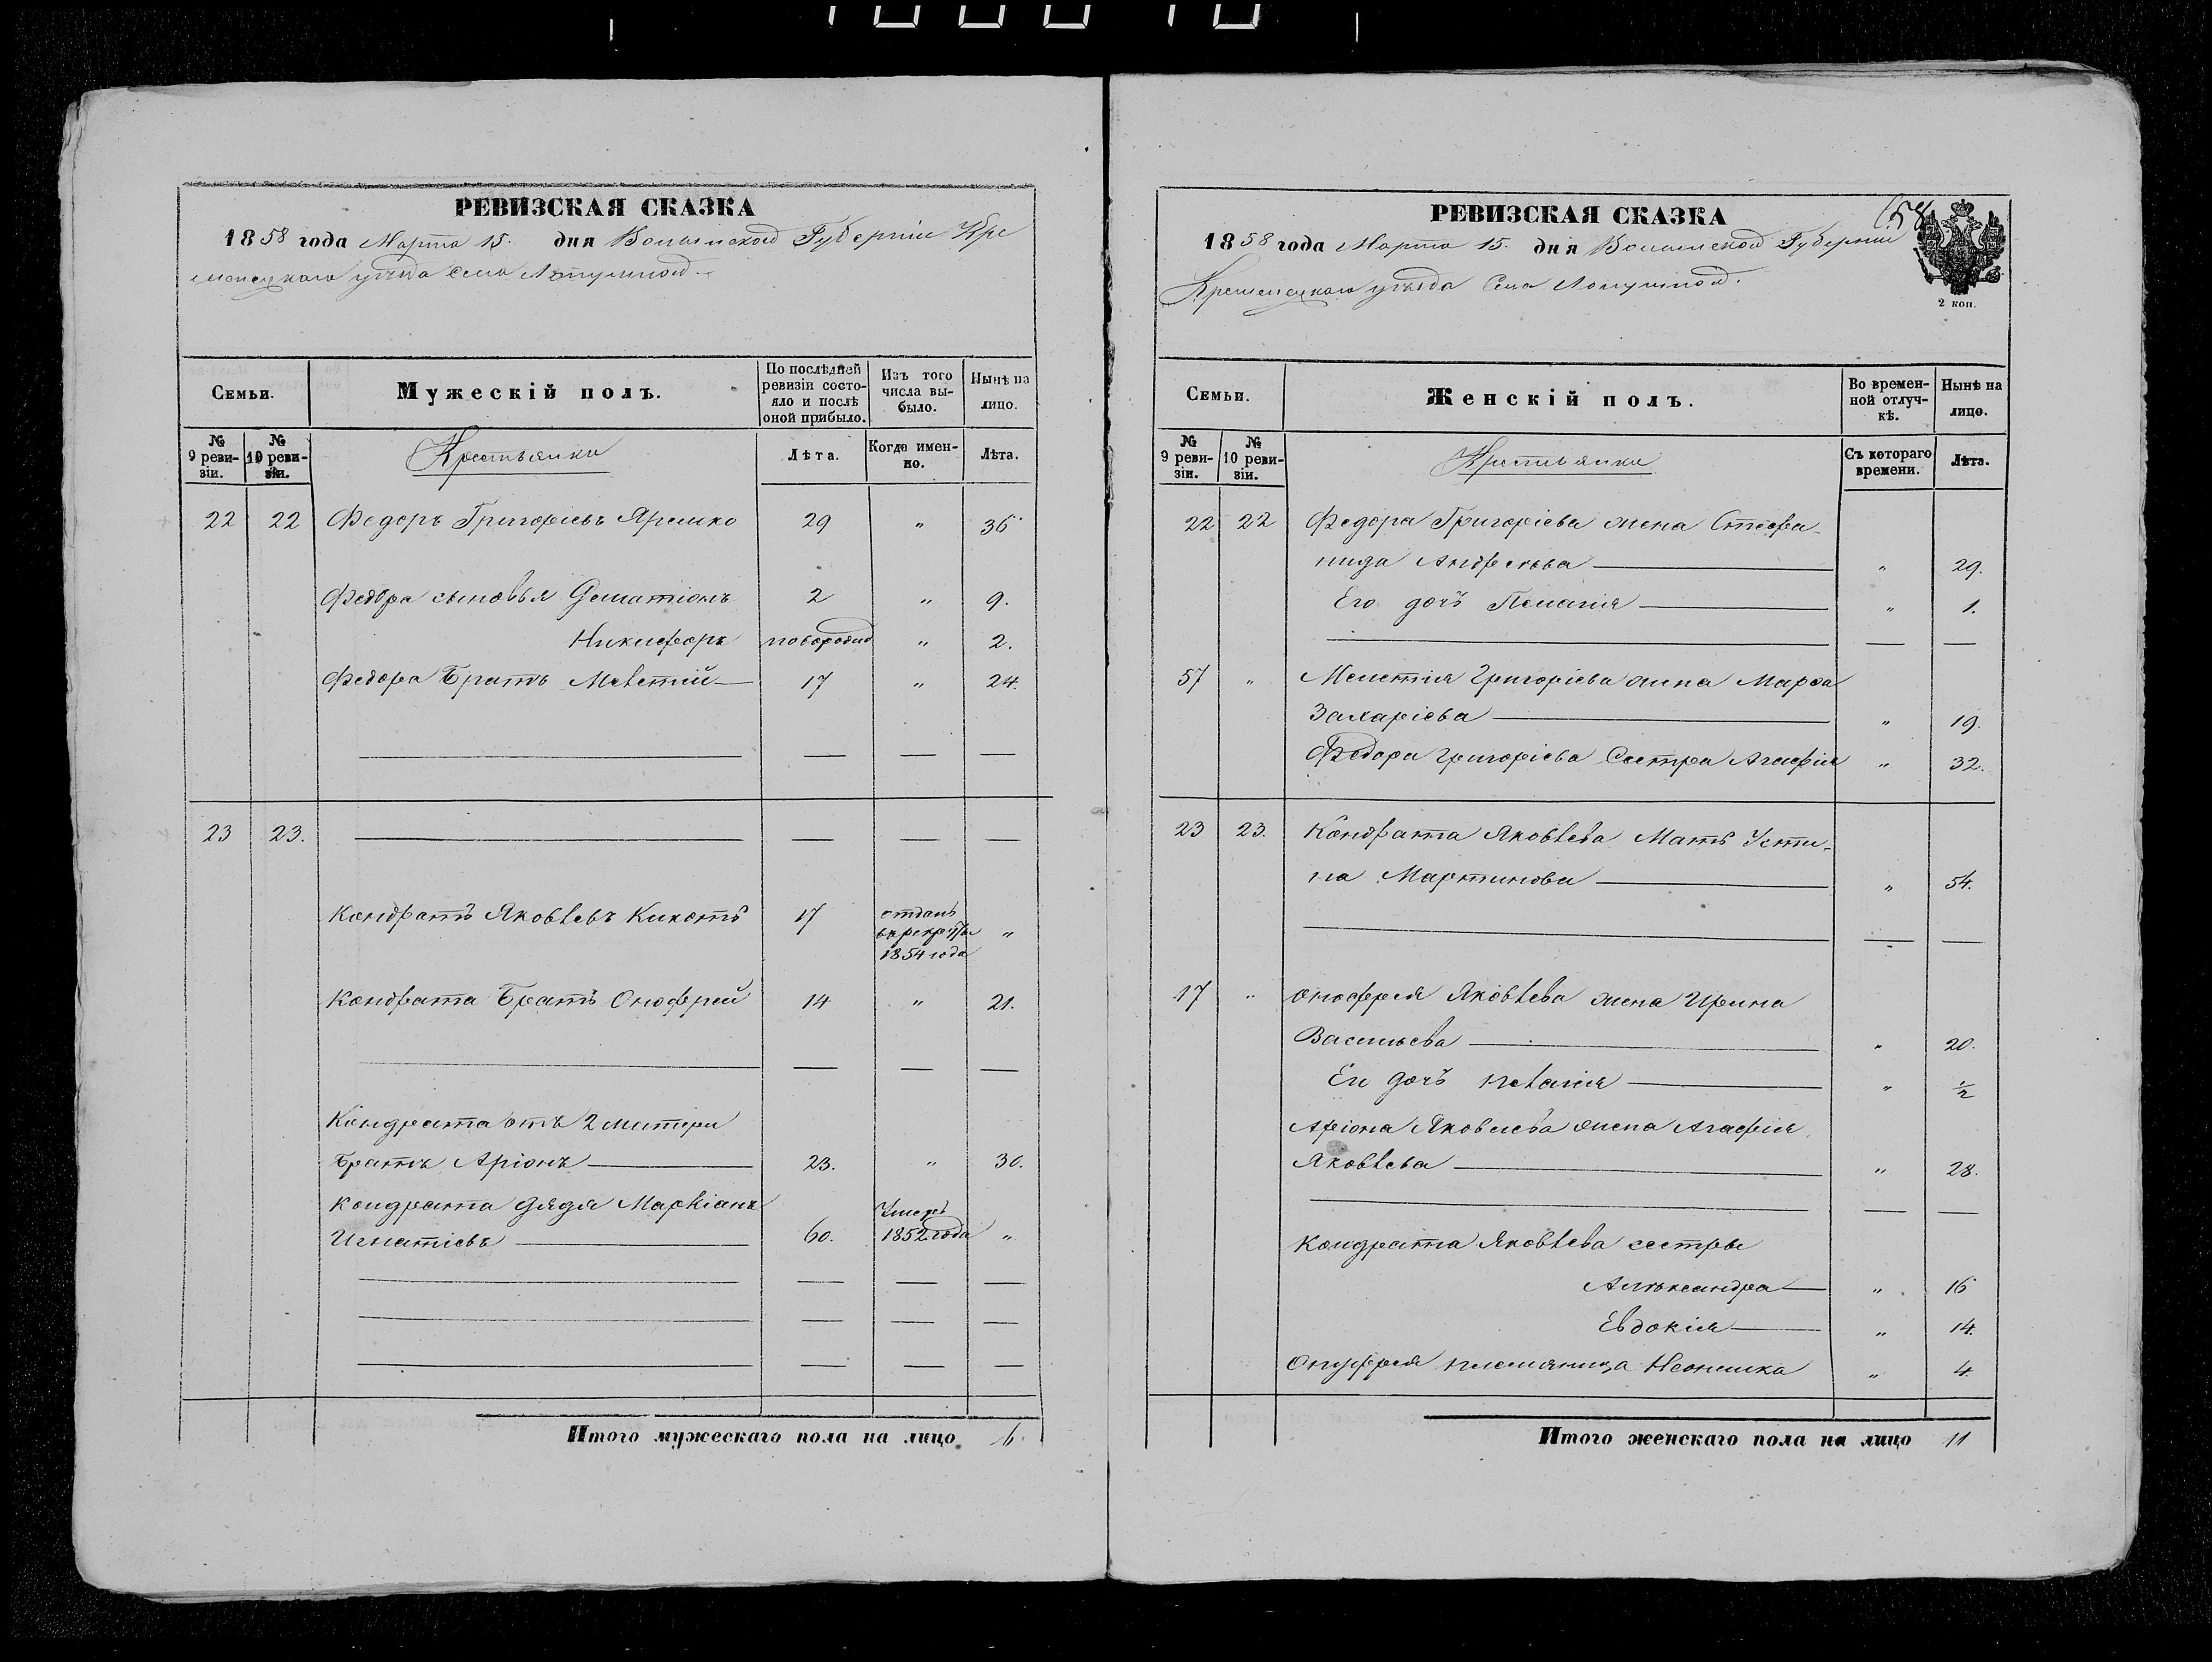 РЕВИЗСКАЯ СКАЗКА
1858 года Марта 15. дня Волынской Губерніи Кре
менецкаго уѣзда Села
Семьи.
Мужескій полъ.
По послѣдней ревизіи состо-
яло и послѣ оной прибыло.
Изъ того числа вы-
было.
Нынѣ на лицо.
№ 9 реви-
зіи.
№ 10 реви-
зіи.
Крестьянки
Лѣта.
Когда имен-
но.
Лѣта.
22 22 Федоръ Григоріевъ Яремко 29 " 36
Федора сыновья 2 " 9.
Никифоръ новорожд " 2.
Федора Братъ Мелетій 17 " 24.
23 23.
Кондратъ Яковлевъ Кикоть 17 отданъ
въ рекруты "
1854 года
Кондрата Братъ Оноффрей 14 " 21.
Кондрата отъ 2 матери
Братъ Аріонъ 23. " 30.
Кондрата дядя Маркіанъ Умеръ
Игнатіевъ 60. 1852 года "
Итого мужескаго пола на лицо 6.
58
РЕВИЗСКАЯ СКАЗКА
1858 года Марта 15. дня Волынской Губерніи
Кременецкаго уѣзда Села
2 коп.
Семьи.
Женскій полъ.
Во времен-
ной отлуч-
кѣ.
Нынѣ на лицо.
№ 9 реви-
зіи.
№ 10 реви-
зіи.
Крестьянки
Съ котораго времени.
Лѣта.
22 22 Федора Григоріева жена Стефа-
нида Андреева " 29.
Его дочь Пелагія " 1.
57 " Мелетія Григоріева жена Марѳа
Захаріева " 19.
Федора Григоріева Сестра Агафія " 32.
23 23. Кондрата Яковлева Мать Усти-
на Мартинова " 54.
17 " Оноффрея Яковлева жена Ирина
Васильева " 20.
Ея дочь Пелагія " ½
Аріона Яковлева жена Агафія
Яковлева " 28.
Кондрата Яковлева сестры
Александра " 16
Евдокія " 14.
Онуффрея племяница 4.
Итого женскаго пола на лицо 11